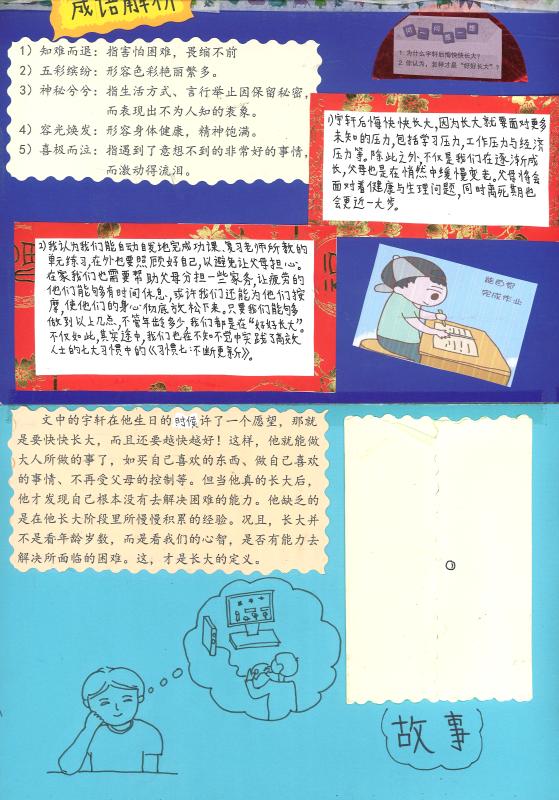 成语解析
1）知难而退：指害怕困难，畏缩不前
2）五彩缤纷：形容色彩艳丽繁多。
3）神秘兮兮：指生活方式、言行举止因保留秘密，
而表现出不为人知的表象。
4）容光焕发：形容身体健康，精神饱满。
5）喜极而泣：指遇到了意想不到的非常好的事情，
而激动得流泪。
想一想 想一想
1. 为什么宇轩后悔快快长大？
2. 你认为，怎样才是“好好长大”？
1)宇轩后悔快快长大，因为长大就要面对更多
未知的压力，包括学习压力，工作压力与经济
压力等。除此之外，不仅是我们在逐渐成
长，父母也是在悄然中缓慢变老。父母将会
面对着健康与生理问题，同时离死期也
会更近一大步。
2)我认为我们能自动自发地完成功课、复习老师所教的
单元练习，在外也要照顾好自己，以避免让父母担心。
在家我们也需要帮助父母分担一些家务，让疲劳的
他们能够多有时间休息，或许我们还能为他们按
摩，使他们的身心彻底放松下来。只要我们能够多
做到以上几点，不管年龄多少，我们都是在“好好长大”。
不仅如此，其实途中，我们也在不知不觉中实践了高效
人士的七大习惯中的《习惯七：不断更新》。
能自觉
完成作业
文中的宇轩在他生日的时候许了一个愿望，那就
是要快快长大，而且还要越快越好！这样，他就能做
大人所做的事了，如买自己喜欢的东西、做自己喜欢
的事情、不再受父母的控制等。但当他真的长大后，
他才发现自己根本没有去解决困难的能力。他缺乏的
是在他长大阶段里所慢慢积累的经验。况且，长大并
不是看年龄岁数，而是看我们的心智，是否有能力去
解决所面临的困难。这，才是长大的定义。
故事